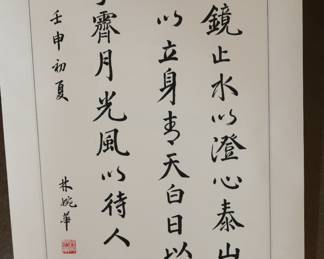 鏡止水以澄心泰山
以立身青天白日以
霽月光風以待人
壬申初夏
林婉華